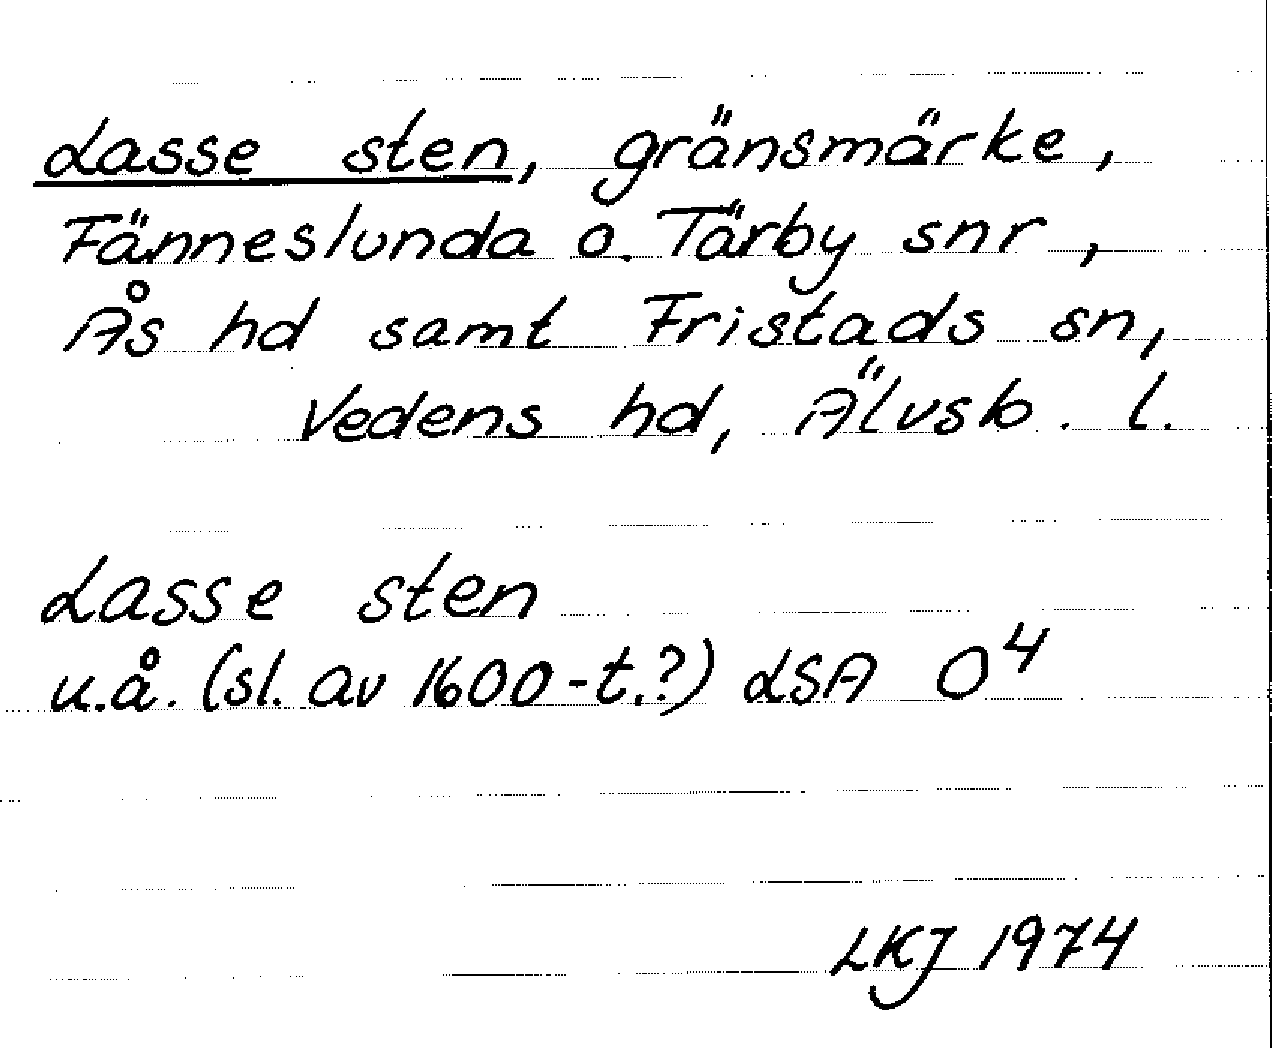 Lasse sten, gränsmärke,
Fänneslunda o. Tärby snr,
Ås hd samt Fristads sn,
Vedens hd, Älvsb. l.
Lasse sten
u.å. (sl. av 1600-t.?) LSA O⁴
LKJ 1974